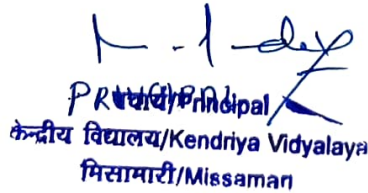 PRINCIPAL
प्राचार्य/Principal
केन्द्रीय विद्यालय/Kendriya Vidyalaya
मिसामारी/Missamari